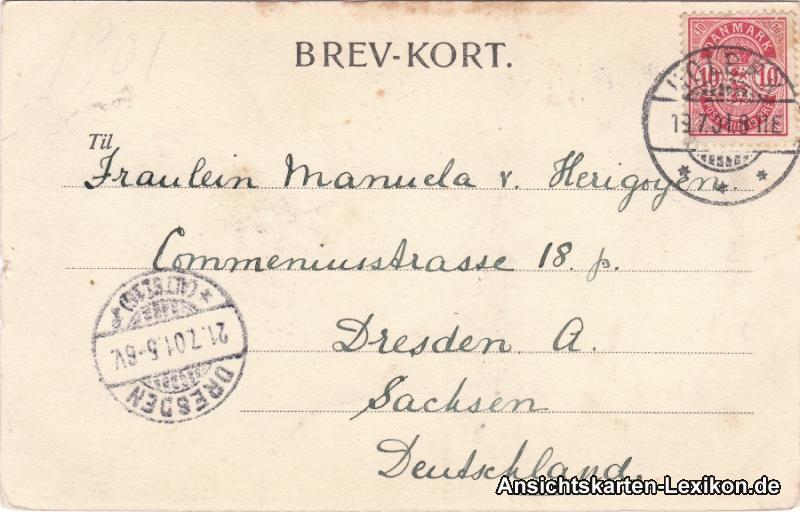 1901
BREV-KORT.
DANMARK
10 10
19.7.01.8
Til
Fräulein Manuela v. Herigoyen.
Commeniusstrasse 18. p.
(ALTST.)
21.7.01.5-6V.
DRESDEN
Dresden A.
Sachsen
Deutschland.
Ansichtskarten-Lexikon.de